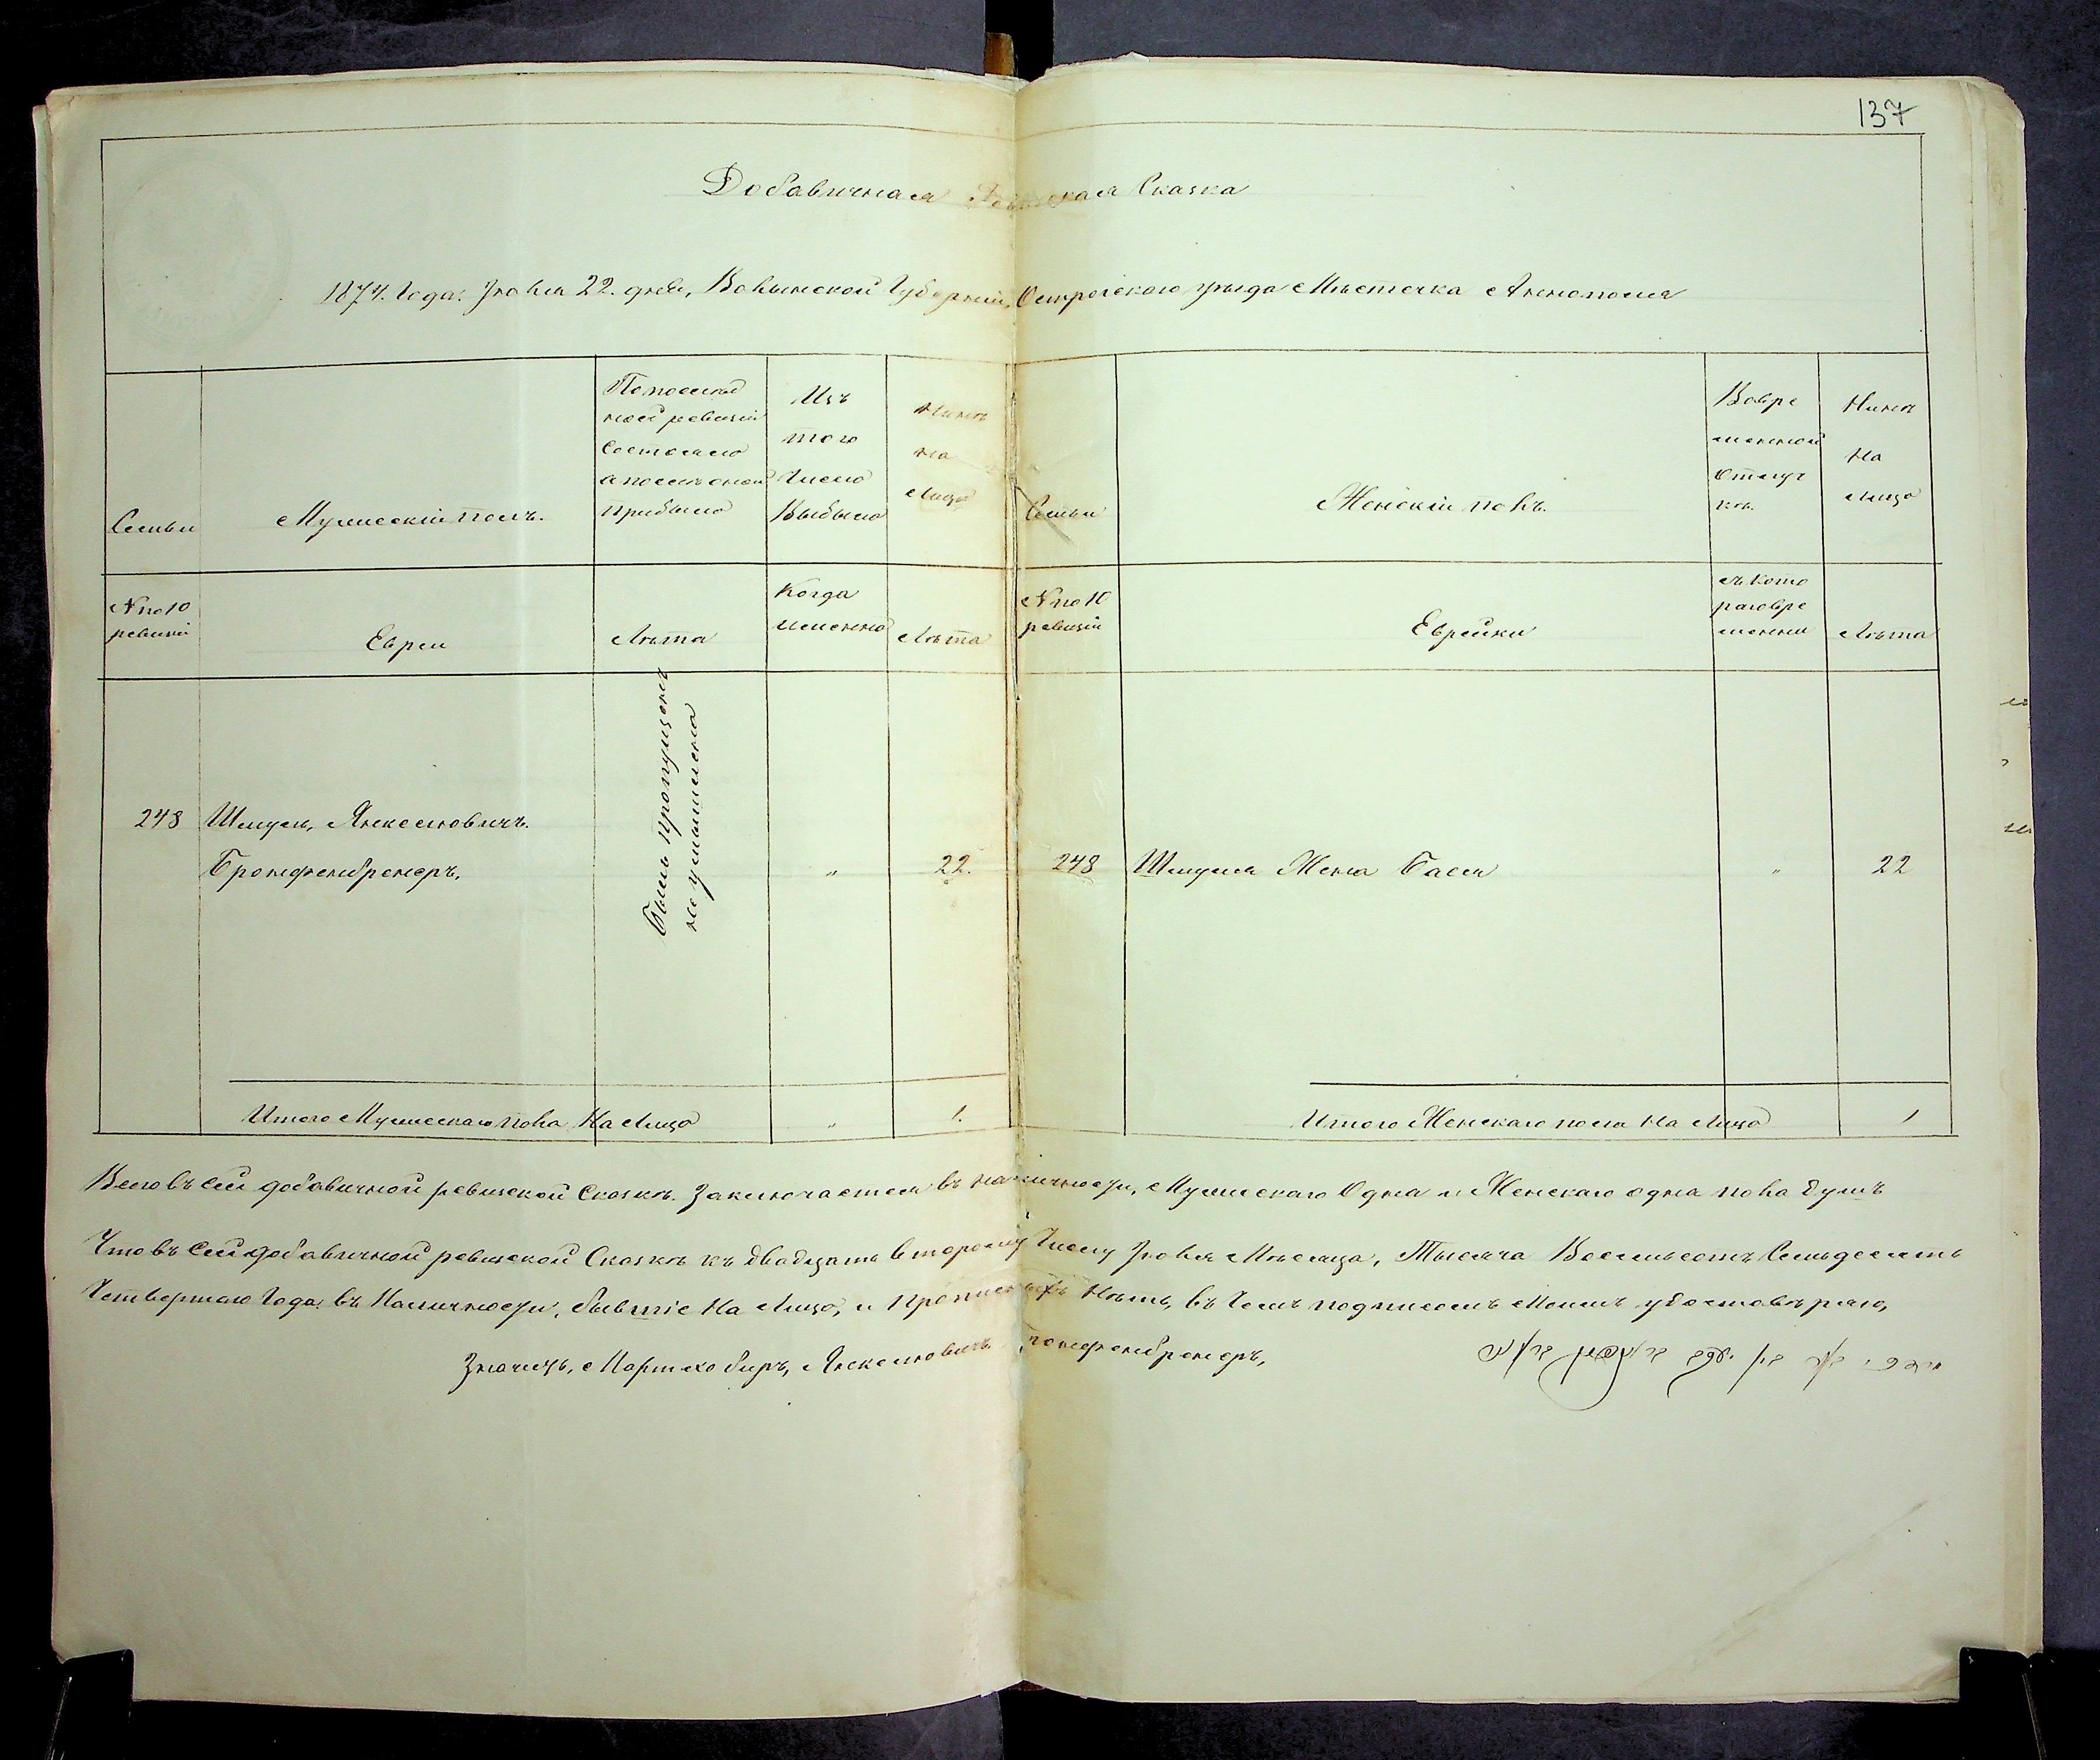 137
Добавичная Ревизская Сказка
1874. Года. Іюля 22. дня, Волынской Губерній, Острогского уѣзда Мѣстечка Аннополя
Семьи
Мужескій полъ.
По послѣд
ней ревизіи
Состояло
а послѣ оной
прибыло
Изъ
того
Числа
Выбыло
Нынѣ
на
Лицо
Семьи
Женскій полъ.
Вовре
менной
Отлуч
кѣ.
Нынѣ
На
лицо
№ по 10
ревизіи
Евреи
Лѣта
Когда
именно
Лѣта
№ по 10
ревизіи
Еврейки
съ кото
раговре
мении
Лѣта
248 Шмуль, Янкелиовичъ.
Бронфенбренеръ,
Былъ пропущенъ
неумышлено
„ 22.
248 Шмуля Жена Бася „ 22
Итого Мужескаго пола На Лицо „ 1.
Итого Женскаго пола На Лицо 1
Всего въ сей добавичной ревизской Сказкѣ. Заключается въ наличносчи, Мужескаго Одна и Женскаго одна пола душъ
Что въ Сей добавичной ревизской Сказкѣ къ двадцать второму Числу Іюля Мѣсяца, Тысяча Восемьсотъ Семьдесять
Четвертаго Года, въ Наличносчи, бывшіе На Лицо, и прописныхъ Нѣтъ, въ Чемъ подписомъ Моимъ удостовѣряю,
Значицъ, Мортко Биръ, Янкелиовичъ Бронфенбренеръ,